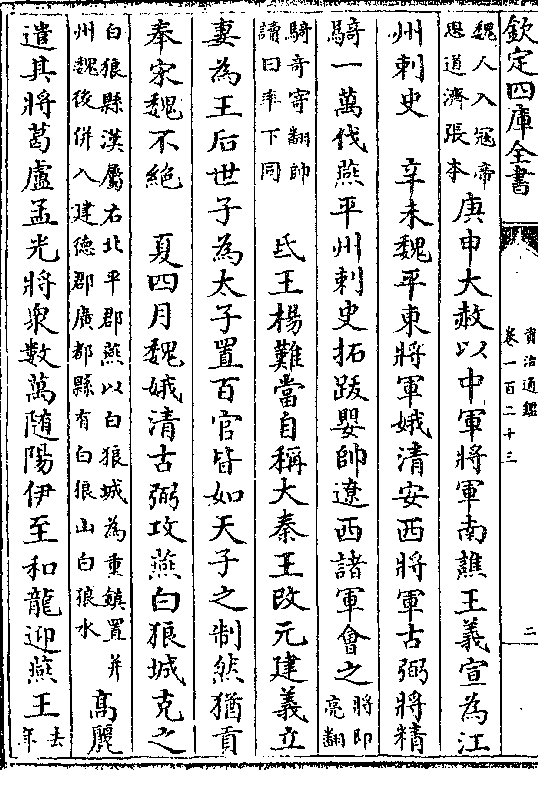 欽定四庫全書
資治通鑑
卷一百二十三
二
魏人入冦帝
思道濟張本
庚申大赦以中軍將軍南譙王義宣為江
州刺史　辛未魏平東將軍娥清安西將軍古弼將精
騎一萬伐燕平州刺史拓跋嬰帥遼西諸軍會之
將即
亮翻
騎奇寄翻帥
讀曰率下同
氐王楊難當自稱大秦王改元建義立
妻為王后世子為太子置百官皆如天子之制然猶貢
奉宋魏不絶　夏四月魏娥清古弼攻燕白狼城克之
白狼縣漢屬右北平郡燕以白狼城為重鎮置并
州魏後併入建德郡廣都縣有白狼山白狼水
髙麗
遣其將葛盧孟光將衆數萬随陽伊至和龍迎燕王
去
年